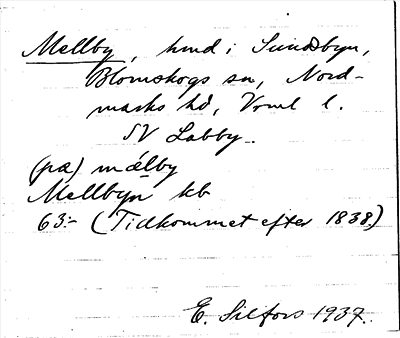 Mellby, hmd i Sundsbyn,
Blomskogs sn, Nord-
marks hd, Vrml l.
SV Labby.
(pa) mælby
Mellbyn kb
63:- (Tidkommet efter 1838)
E. Silfors 1937.